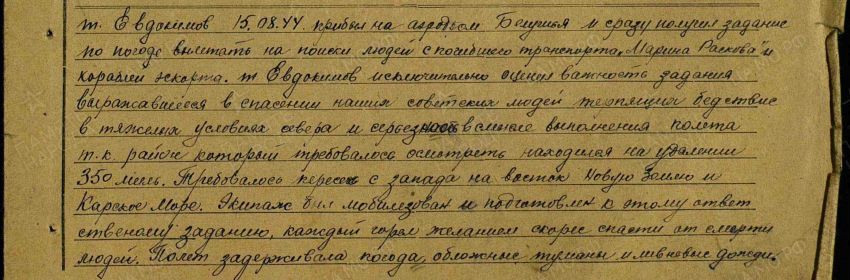 т. Евдокимов 15.08.44. прибыл на аэродром Белушья и сразу получил задание
по погоде вылетать на поиски людей с погибшего транспорта „Марина Раскова" и
кораблей эскорта. т Евдокимов исключительно оценил важность задания
выражавшееся в спасении наших советских людей терпящих бедствие
в тяжелых условиях севера и серьезность в смысле выполнения полета
т.к. район который требовалось осмотреть находился на удалении
350 миль. Требовалось пересеч с запада на восток Новую Землю и
Карское Море. Экипаж был мобилизован и подготовлен к этому ответ
ственому заданию, каждый горел желанием скорее спасти от смерти
людей. Полет задерживала погода, обложные туманы и ливневые дожди.